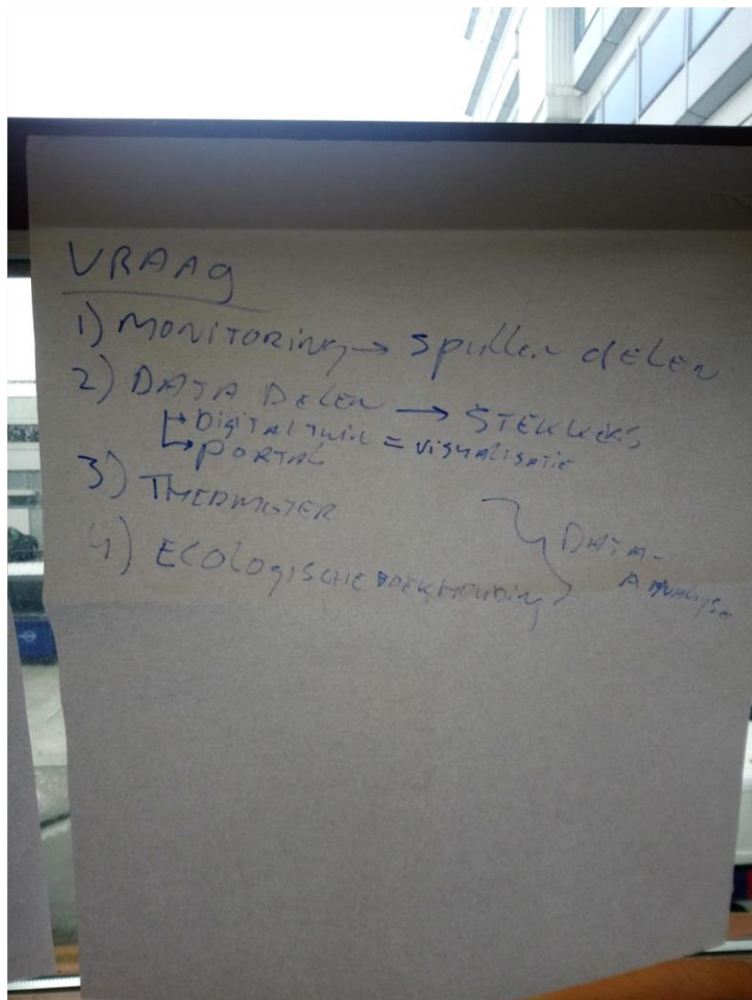 VRAAG
1) MONITORING → Spullen delen
2) DATA DELEN → STEKKERS
↳ DIGITAL TWIN = VISUALISATIE
↳ PORTAL
3) THERMOTER
4) ECOLOGISCHE BOEKHOUDING
DATA-
ANALYSE